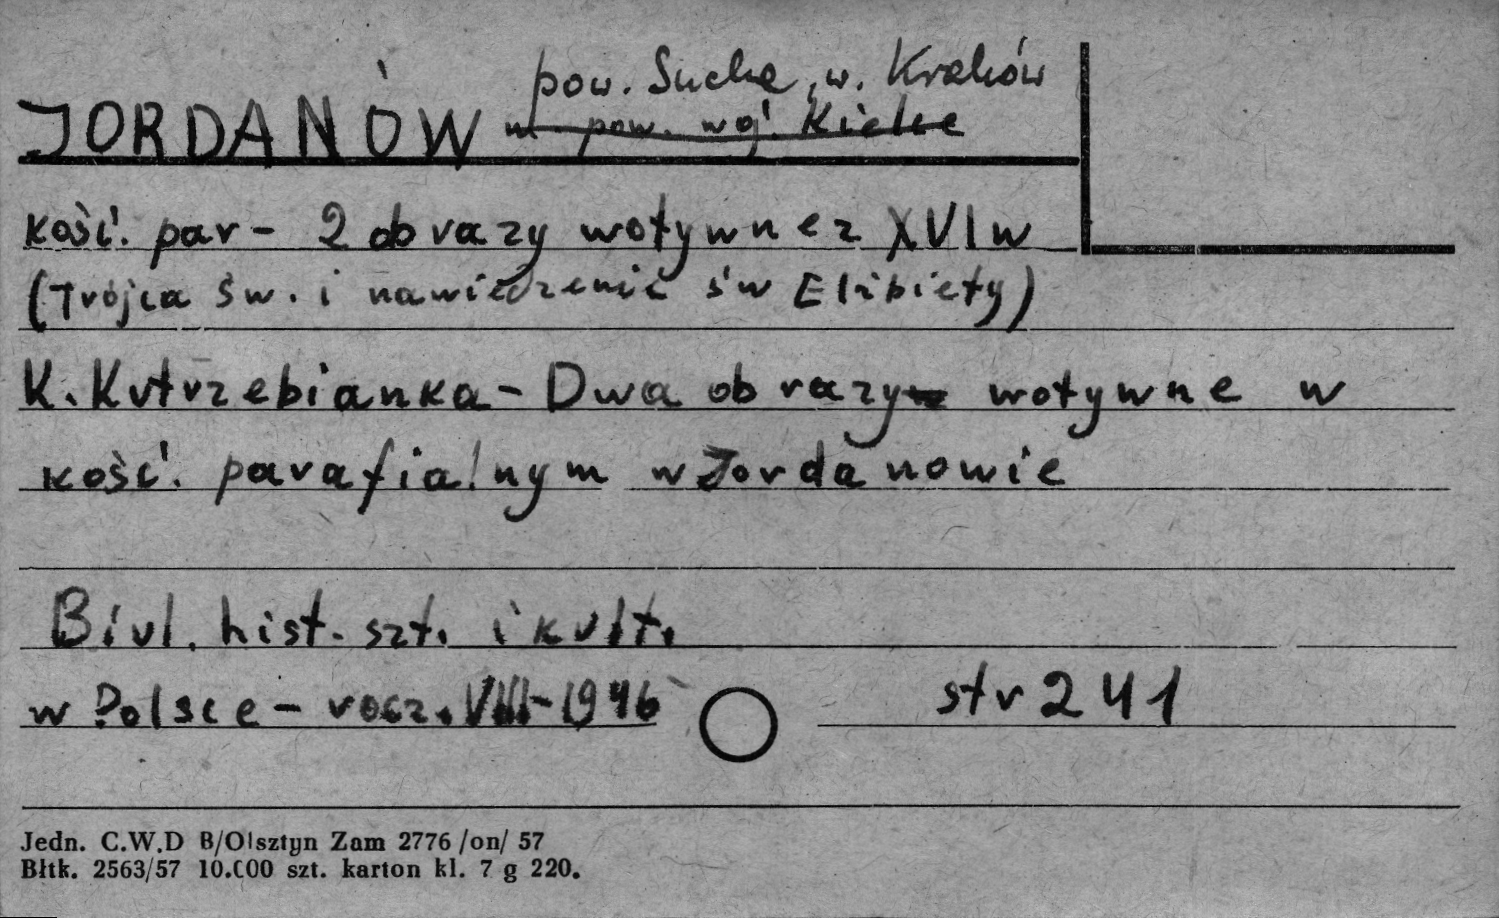 pow. Sucha, w. Kraków
JORDANÓW m. pow. woj. Kielce
kość. par - 2 obrazy wotywne z XVI w
(Trójca św. i nawiedzenie św Elżbiety)
K. Kutrzebianka - Dwa obrazy wotywne w
kość. parafialnym w Jordanowie
Biul. hist. szt. i kult.
w Polsce - rocz. VIII - 1946 str 241
Jedn. C.W.D B/Olsztyn Zam 2776 /on/ 57
Błtk. 2563/57 10.000 szt. karton kl. 7 g 220.